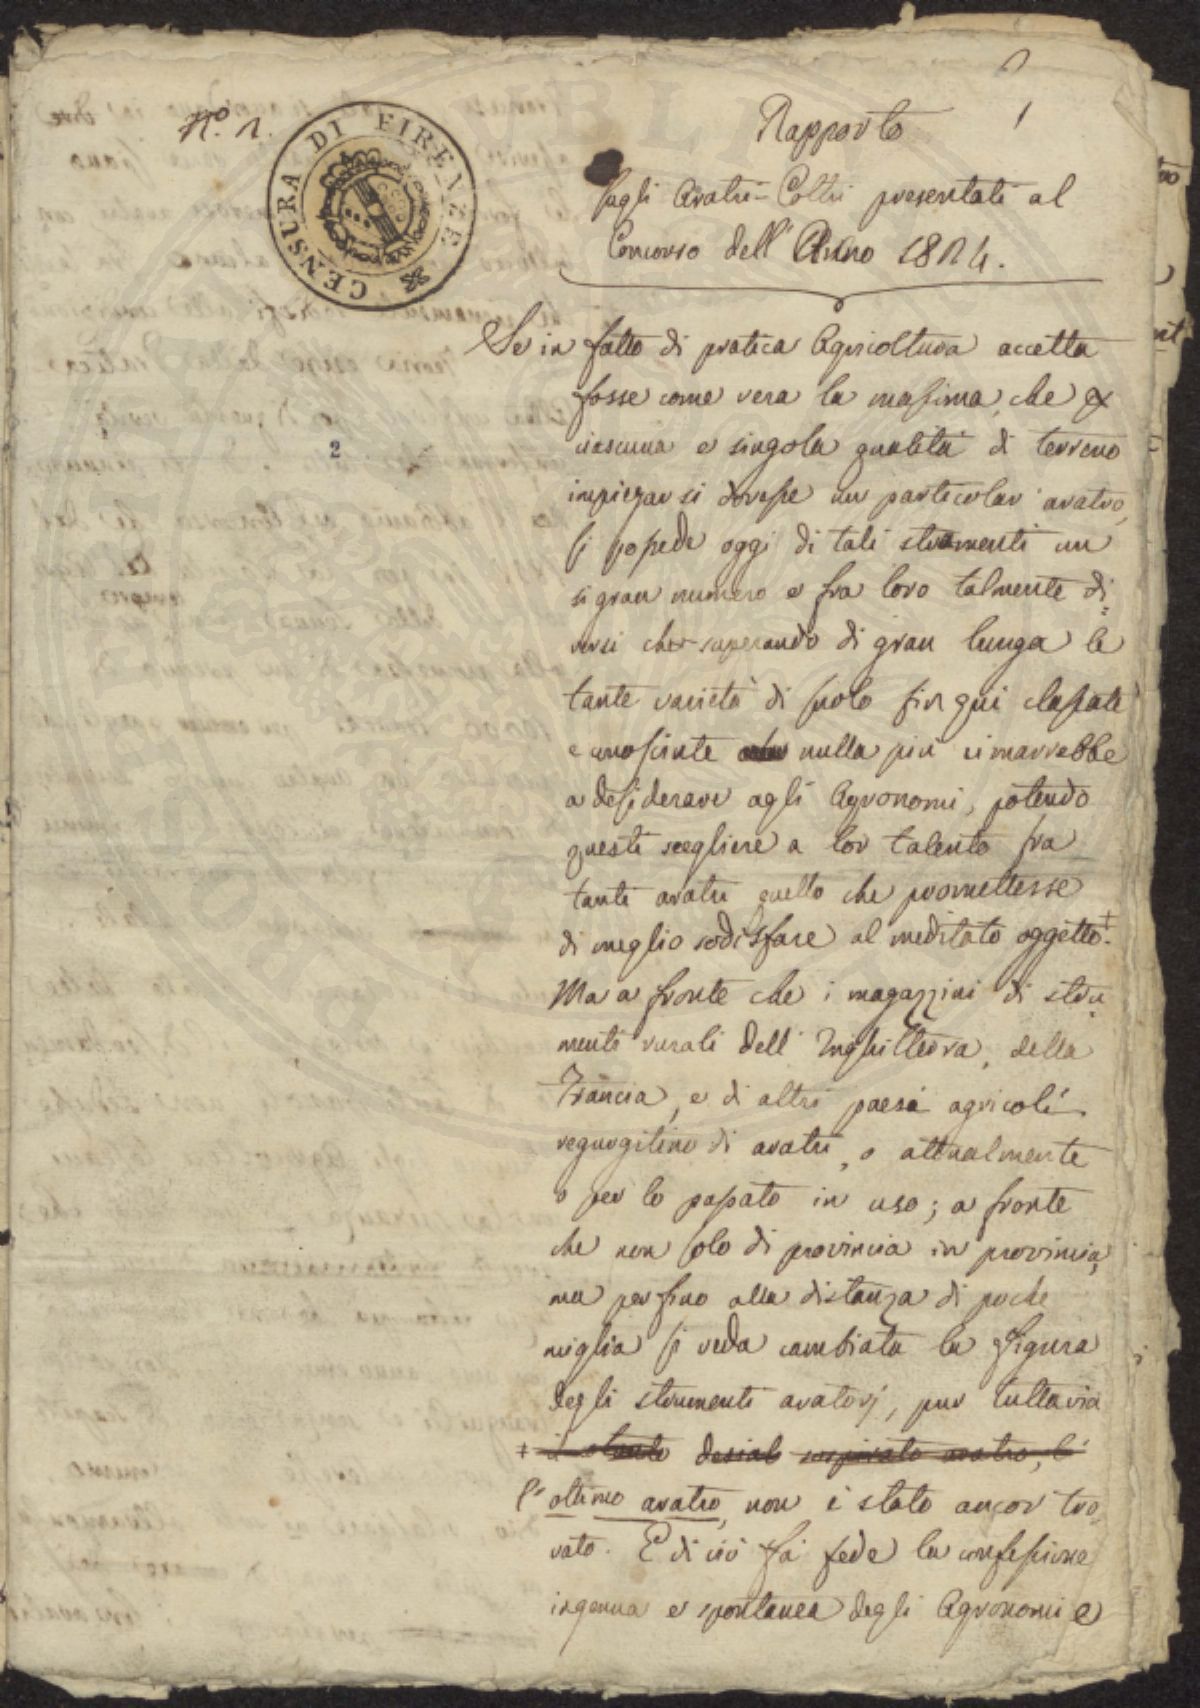 N.º 1.
1
CENSURA DI FIRENZE
Rapporto
sugli Aratri-Coltri presentati al
Concorso dell' Anno 1824.
Se in fatto di pratica Agricoltura accetta
fosse come vera la massima, che
ciascuna e singola qualità di terreno
impiegar si dovesse un particolar aratro,
si possede oggi di tali strumenti un
si gran numero e fra loro talmente di=
versi che superando di gran lunga le
tante varietà di suolo fin qui classate
e conosciute nulla più rimarrebbe
a desiderare agli Agronomi, potendo
questi scegliere a lor talento fra
tanti aratri quello che promettesse
di meglio sodisfare al meditato oggetto.
Ma a fronte che i magazzini di stru
menti rurali dell' Inghilterra, della
Francia, e di altri paesi agricoli
regurgitino di aratri, o attualmente
o per lo passato in uso; a fronte
che non solo di provincia in provincia,
ma perfino alla distanza di poche
miglia si veda cambiata la figura
degli strumenti aratorj, pur tuttavia
sospirato aratro, l'
l' ottimo aratro, non è stato ancor tro
vato. E di ciò fà fede la confessione
ingenua e spontanea degli Agronomi e
2